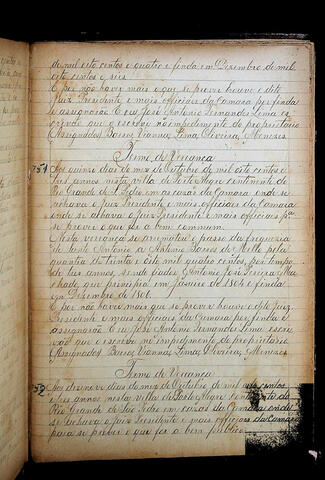 de mil oito centos e quatro e finda em Dezembro de mil
oito centos e seis.
E por não haver mais o que se prove houve o dito
Juiz Presidente e mais officiaes da Camara por finda
e assignarão. E eu José Antonio Fernandes Lima es-
crivão que o escrevi no impedimento do proprietario
Assignados Barros, Vianna, Lima, Oliveira, Menezes.
Termo de Vereança
Aos quinze dias do mez de Outubro de mil oito centos e
tres annos nesta villa de Porto Alegre continente do
Rio Grande de S. Pedro em casas da camara onde se
achava o Juiz Presidente e mais officiaes da Camara
onde se achava o Juiz Presidente e mais officiaes pa
se prover o que for a bem commum.
Nesta vereança se arrematou o passo da freguezia
de Santo Antonio a Antonio de Mello pela
quantia de trinta e oito mil quatro centos, por tempo
de tres annos, sendo fiador Antonio José Pereira Ma
chado, que principia em Janeiro de 1804 e finda
em Dezembro de 1806.
E por não haver mais que se prove houve o dito Juiz
Presidente e mais officiaes da Camara por finda e
assignarão. E eu José Antonio Fernandes Lima escri
vão que o escrevi no impedimento do proprietario
Assignados Barros, Vianna, Lima, Oliveira, Menezes
Termo de Vereança
Aos dezenove dias do mez de Outubro de mil oito centos
e tres annos nesta villa de Porto Alegre continente do
Rio Grande de São Pedro em casas da Camara onde
se achava o Juiz Presidente e mais officiaes da Camara
para se prover o que for a bem publico